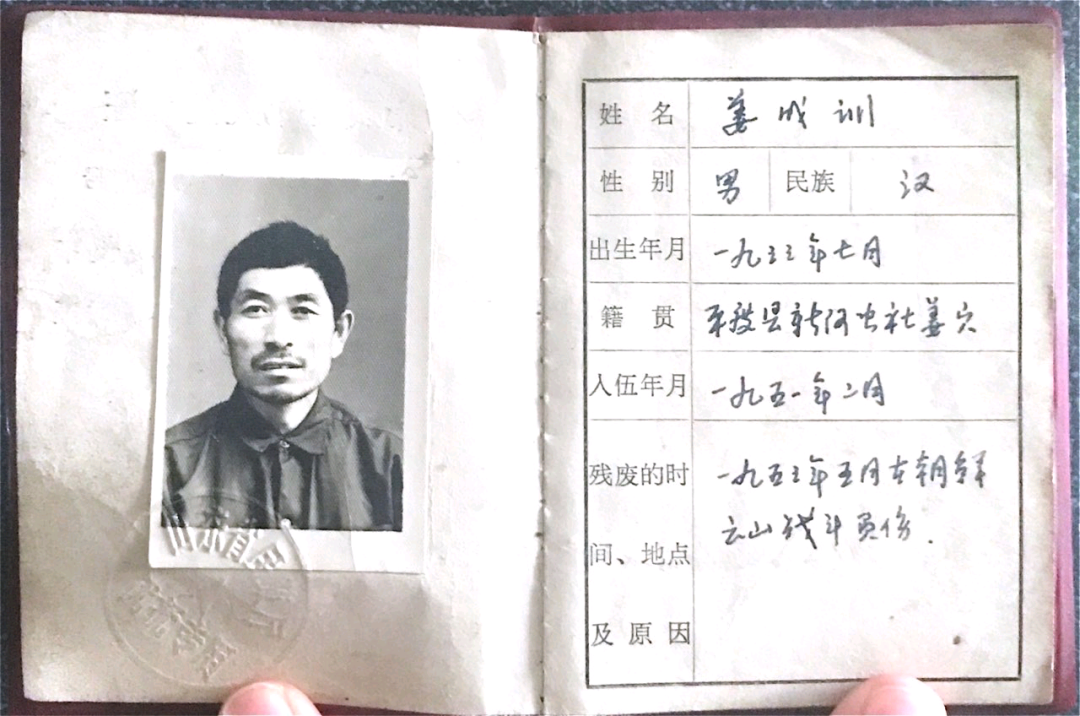 姓名 姜成训
性别 男 民族 汉
出生年月 一九三三年七月
籍贯 平度县新河公社姜
入伍年月 一九五一年二月
残废的时 一九五三年五月在朝鲜
间、地点 云山战斗负伤.
及原因
山东省民